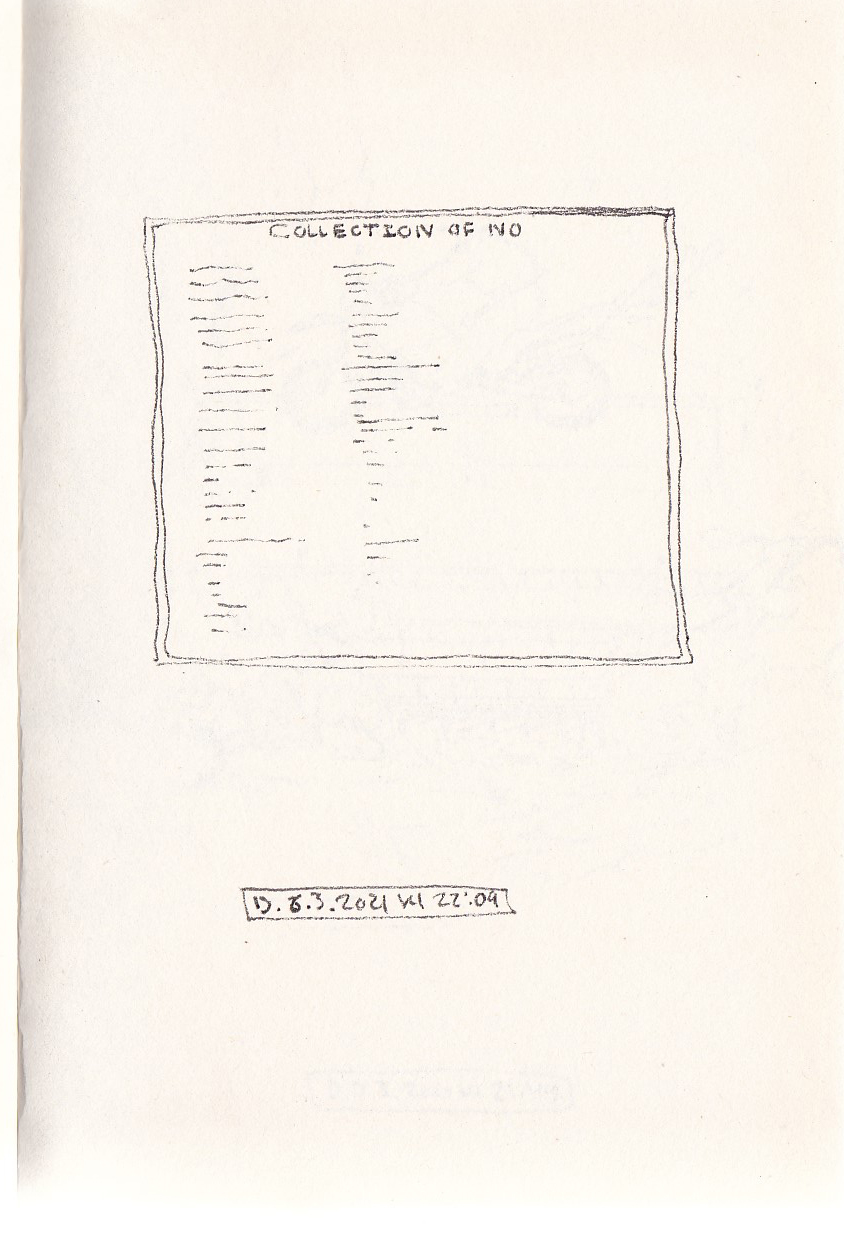 COLLECTION OF NO
D. 8.3.2021 kl 22:09